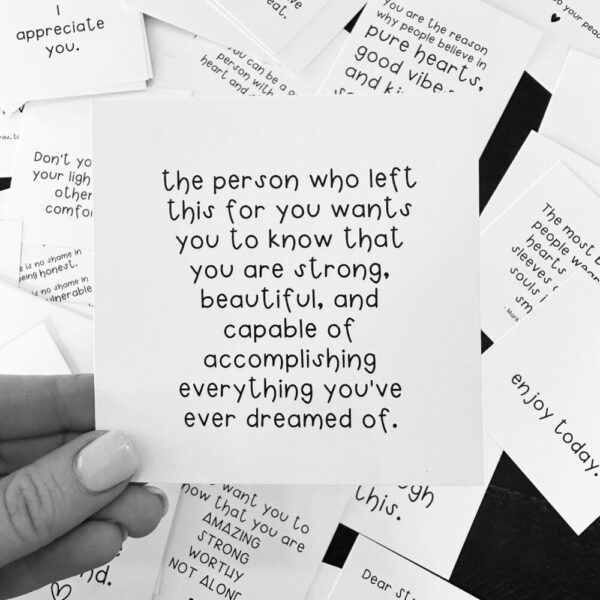 I
appreciate
you.
eat.
you can be a
person with
heart and
You are the reason
why people believe in
pure hearts,
good vibes,
and
your
Don't
your
other
is no shame in
being honest.
is no shame in
vulnerable
the person who left
this for you wants
you to know that
you are strong,
beautiful, and
capable of
accomplishing
everything you've
ever dreamed of.
The most
people
hearts
sleeves
souls
enjoy today.
want you to
that you are
AMAZING
STRONG
WORTHY
NOT ALONE
this.
Dear